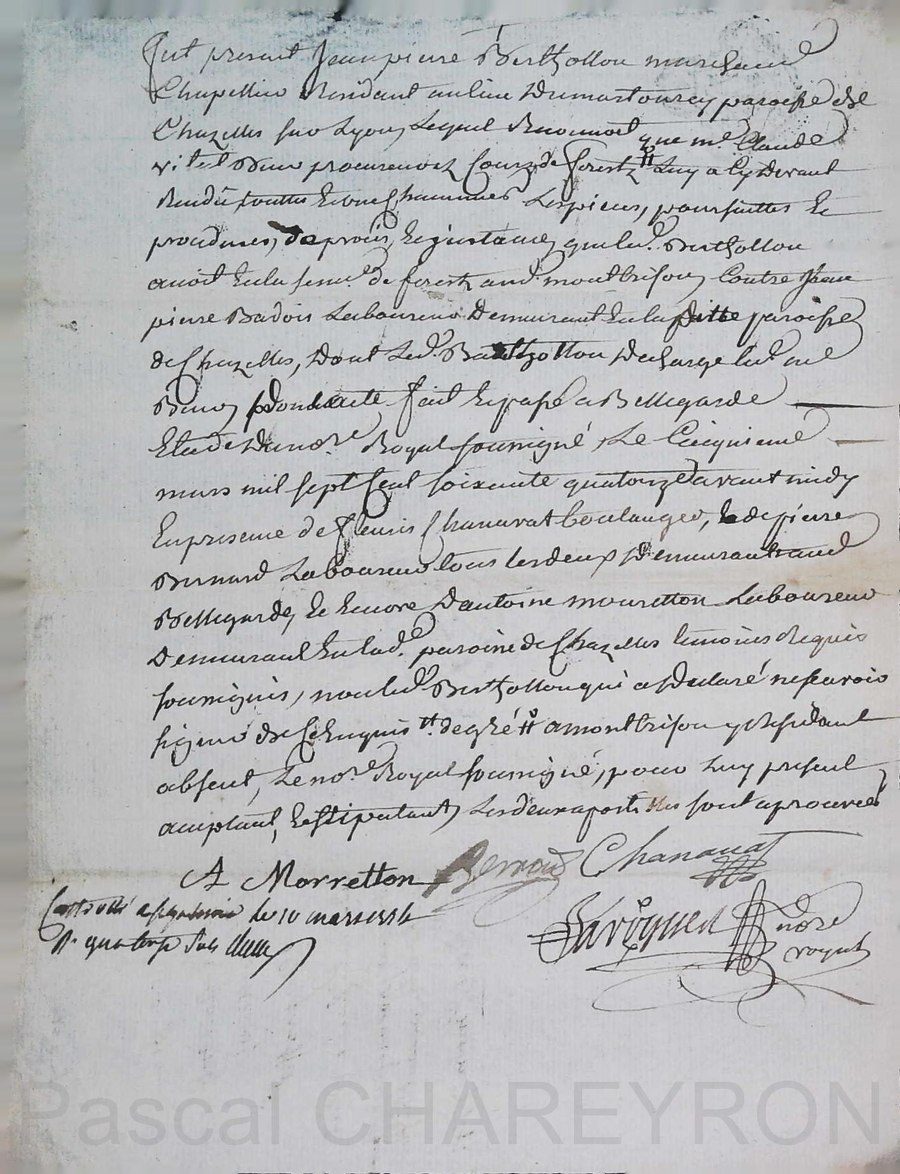 fut present Jean pierre Berthollon marchand
Chapellier Residant au lieu Dumartourey paroisse de
Chazelles sur Lyon, Lequel Reconnoit que me. Claude
vitet procureur ez Cours de forestz Luy a Cy Devant
Rendu touttes Les pieces, poursuittes Et
procedures, du procés, Et instance, que led. Berthollon
avoit En la senee. de forestz aud. montbrison, Contre Jean
pierre Badois Laboureur Demeurant En la ditte paroisse
de Chazelles, Dont Led. Berthollon Decharge led. me
Dont acte. fait Et passé a Bellegarde
Etude Du nore. Royal soussigné, Le Cinquieme
mars mil sept Cent soixante quatorze avant midy
En presence de fleuris Chanavat boulanger, & de pierre
Bernard Laboureur tous les deux Demeurant aud.
Bellegarde, Et Encore D'antoine mouretton Laboureur
Demeurant En lad. paroisse de Chazelles temoins Requis
soussignés, non led. Berthollon qui a Declaré ne sçavoir
signer de Ce Enquis tt. degré tt a montbrison y Residant
absent, Le nore. Royal soussigné, pour Luy present
acceptant, Et stipulant, Les deux apostilles sont aprouvées
A Morretton Bernard Chanavat
le 10 mars 1774
R. quatorze sols
nore
royal
Pascal CHAREYRON